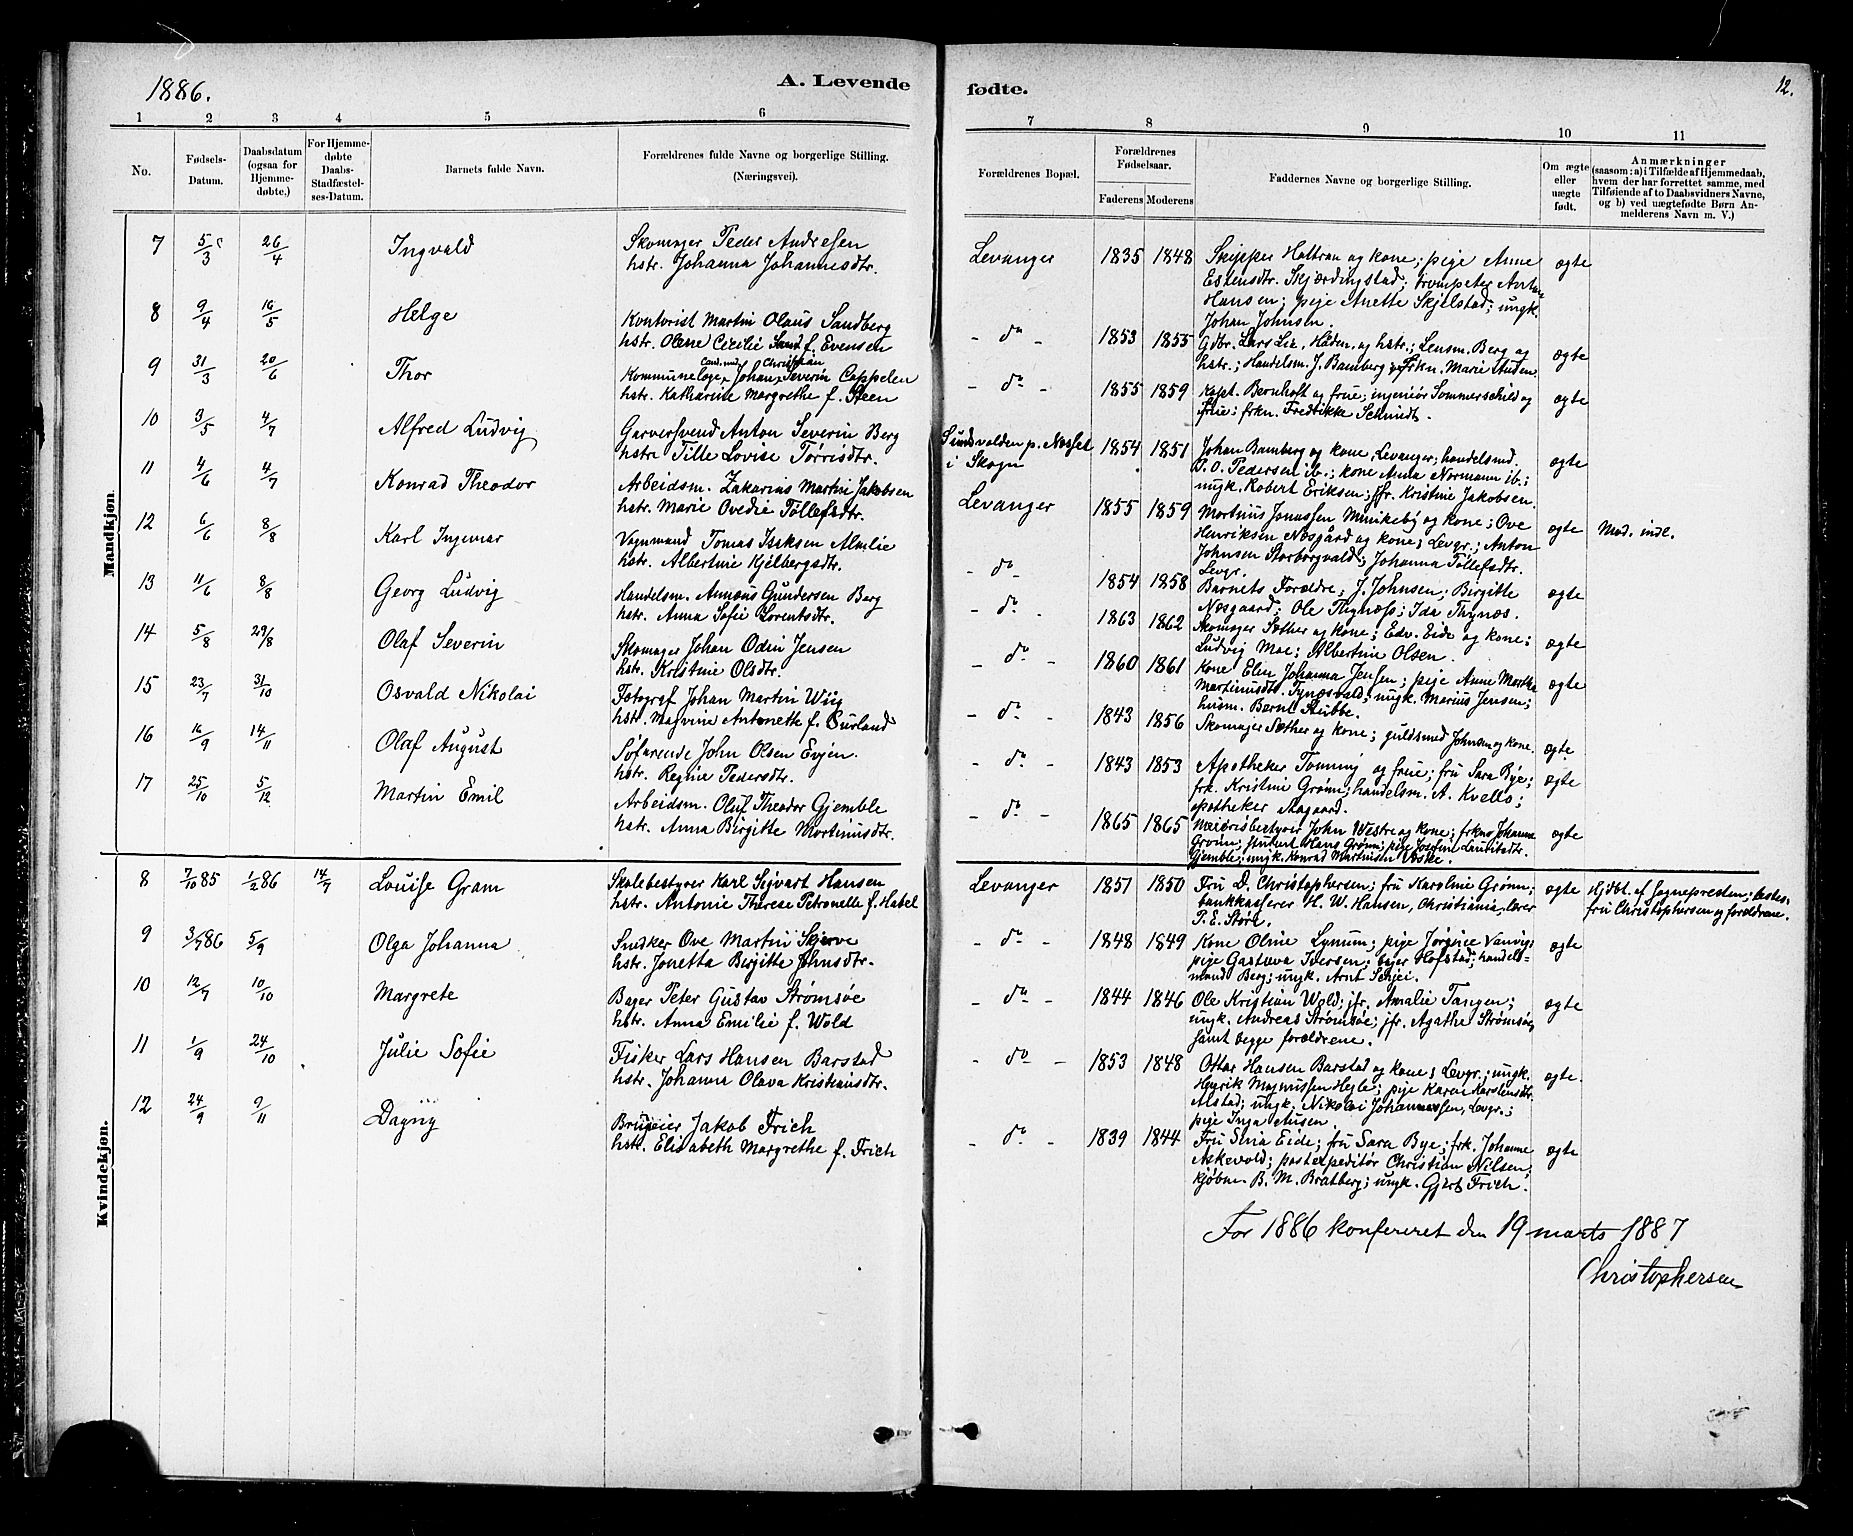 1886.
A. Levende
1 2 3 4 5 6
No.
Fødsels-Datum.
Daabsdatum (ogsaa for Hjemmedøbte.)
For Hjemmedøbte Daabs-Stadfæstelses-Datum.
Barnets fulde Navn.
Forældrenes fulde Navne og borgerlige Stilling.
(Næringsvei).
Mandkjøn.
7 5/3 26/4 Ingvald Skomager Peder Andresen
hstr. Johanna Johannesdtr.
8 9/4 16/5 Helge Kontorist Martin Olaus Sandberg
hstr. Olene Cecilie Sand f. Evensen
9 31/3 20/6 Thor Kommunelæge, Cand. med. Johan Christian Severin Cappelen
hstr. Katharine Margrethe f. Steen
10 3/5 4/7 Alfred Ludvig Garversvend Anton Severin Berg
hstr. Tille Lovise Tørrisdtr.
11 4/6 4/7 Konrad Theodor Arbeidsm. Zakarias Martin Jakobsen
hstr. Marie Ovedie Tøllefsdtr.
12 6/6 8/8 Karl Ingemar Vognmand Tomas Isaksen Almlie
hstr. Albertine Kjelbergsdtr.
13 11/6 8/8 Georg Ludvig Handelsm. Annæus Gundersen Berg
hstr. Anna Sofie Lorentsdtr.
14 5/8 29/8 Olaf Severin Skomager Johan Odin Jensen
hstr. Kristine Olsdtr.
15 23/7 31/10 Osvald Nikolai Fotograf Johan Martin Wiig
hstr. Magvine Antonette f. Ourland
16 16/9 14/11 Olaf August Søfarende John Olsen Evjen.
hstr. Regine Pedersdtr.
17 25/10 5/12 Martin Emil Arbeidsm. Oluf Theodor Gjemble
hstr. Anna Birgitte Martinusdtr.
Kvindekjøn.
8 7/10 85 1/2 86 14/7 Louise Gram Skolebestyrer Karl Sigvart Hansen
hstr. Antonie Therese Petronelle f. Habel
9 3/7 86 5/9 Olga Johanna Snedker Ove Martin Skjerve
hstr. Jonetta Birgitte Johnsdtr.
10 12/7 10/10 Margrete Bager Peter Gustav Strømsøe
hstr. Anna Emilie f. Wold
11 1/9 24/10 Julie Sofie Fisker Lars Hansen Barstad
hstr. Johanna Olava Kristiansdtr.
12 24/9 9/11 Dagny Brugeier Jakob Frich
hstr. Elisabeth Margrethe f. Frich
fødte.
12.
7 8 9 10 11
Forældrenes Bopæl.
Forældrenes Fødselsaar.
Faderens Moderens
Faddernes Navne og borgerlige Stilling.
Om ægte eller uægte født.
Anmærkninger
(saasom: a) i Tilfælde af Hjemmedaab, hvem der har forrettet samme, med Tilføiende af to Daabsvidners Navne, og b) ved uægtefødte Børn Anmelderens Navn m. V.)
Levanger 1835 1848 Skipper Haltran og kone; pige Anne
Estensdtr. Skjærdingstad; trompeter Anton
Hansen; pige Anette Skjelstad; ungk.
Johan Johnsen. ægte
- do - 1853 1855 Gdbr. Lars Lie, Heden og hstr.; Lensm. Berg og
hstr.; Handelsm. J. Bamberg; frkn. Marie Auden. ægte
- do - 1855 1859 Kapt. Bernhoft og frue; ingeniør Sommerschild og
frue; frkn. Fredrikke Schmidt. ægte
Sundsvolden p. Nesset
i Skogn 1854 1851 Johan Bamberg og kone, Levanger; handelsmd.
P. O. Pedersen ib.; kone Anna Normann ib.;
ungk. Robert Eriksen; jfr. Kristine Jakobsen. ægte
Levanger 1855 1859 Martinus Jonassen Minikeby og kone; Ove
Henriksen Nesgård og kone; Levgr.; Anton
Johnsen Storborgvald; Johanna Tøllefsdtr.
Levgr. ægte Mod. indl.
- do - 1854 1858 Barnets Forældre; J. Johnsen; Birgitte
Nesgaard; Ole Thynæss; Ida Thynæs. ægte
- do - 1863 1862 Skomager Sæther og kone; Edv. Eide og kone;
Ludvig Moe; Albertine Olsen. ægte
- do - 1860 1861 Kone Elen Johanna Jensen; pige Anne Martha
Martinusdt. Tynæsvald; ungk. Marius Jensen;
husm. Bernt Stubbe. ægte
- do - 1843 1856 Skomager Sæther og kone; guldsmed Johnsen og kone. ægte
- do - 1843 1853 Apotheker Tønning og frue; fru Sara Bye;
frk. Kristine Grønn; handelsm. A. Kvello;
apotheker Aagaard. ægte
- do - 1865 1865 Meieribestyrer John Westre og kone; frkn. Johanna
Grønn; student Hans Grønn; pige Josefine Lauritsdtr.
Gjemble; ungk. Konrad Martinsen Veske. ægte
Levanger 1851 1850 Fru D. Christophersen; fru Karoline Grønn;
bankkasserer H. W. Hansen, Christiania, lærer
P. E. Støre. ægte Hjdbt. af Sognepresten; testes:
fru Christophersen og forældrene.
- do - 1848 1849 Kone Oline Lynum; pige Jørgine Vanvig;
pige Gustava Iversen; bager Hofstad; handels-
mand Berg; ungk. Arnt Schjei. ægte
- do - 1844 1846 Ole Kristian Wold; jfr. Amalie Tangen;
ungk. Andreas Strømsøe; jfr. Agathe Strømsøe,
samt begge forældrene. ægte
- do - 1853 1848 Ottar Hansen Barstad og kone; Levgr.; ungk.
Henrik Magnussen Hegle; pige Karen Karstensdtr.
Alstad; ungk. Nikolai Johannessen, Levgr.;
pige Inga Ausen. ægte
- do - 1839 1844 Fru Stina Eide; fru Sara Bye; frk. Johanne
Askevold; postexpeditør Christian Nilsen;
kjøbm. B. M. Bratberg; ungk. Gjert Frich. ægte
For 1886 konfereret den 19 marts 1887
Christophersen